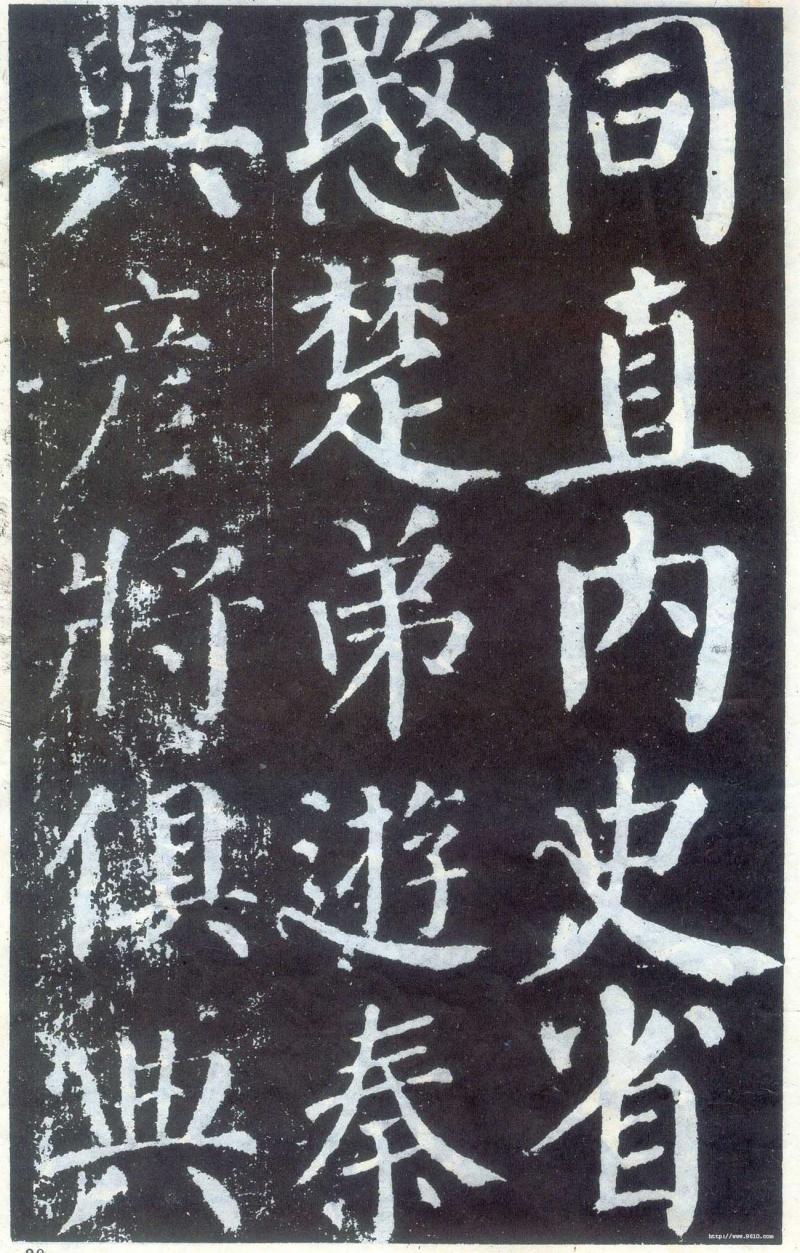 同直内史省
愍楚弟遊秦
與彦將俱典
http://www.9610.com